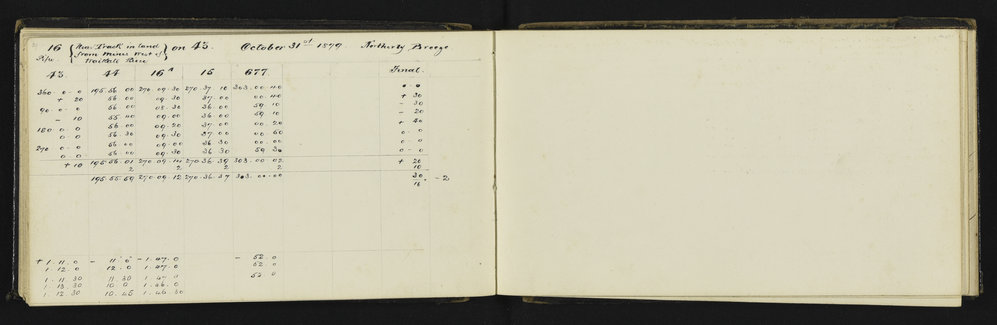 16 { Track inland from Mines West of } on 43. October 31st 1879. Northerly Breeze
43. 44 16A 15 677. Final.
360 0 0 195 56 00 270 09 30 270 37 10 303 00 40 0 0
+ 20 56 00 09 30 37 00 00 40 + 30
90 0 0 56 00 36 00 59 10 - 30
- 10 55 40 09 00 36 00 59 10 - 20
56 00 09 20 37 00 00 20 + 40
180 0 0 56 30 09 30 37 00 0 0
0 0 56 00 09 00 36 30 00 00 0 0
270 0 0 56 00 09 30 36 30 59 30 0 0
0 0
+ 10 195 56 01 270 09 14 270 36 39 303 00 02 + 20
2 2 2 2 10
195 55 59 270 09 12 270 36 37 303 00 00 30
16 - 2
+ 1 11 0 - 11 0 - 1 47 0 - 52 0
1 12 0 12 0 1 47 0 52 0
1 11 30 11 30 1 47 0 52 0
1 13 30 10 0 1 46 0
1 12 30 10 45 1 46 30